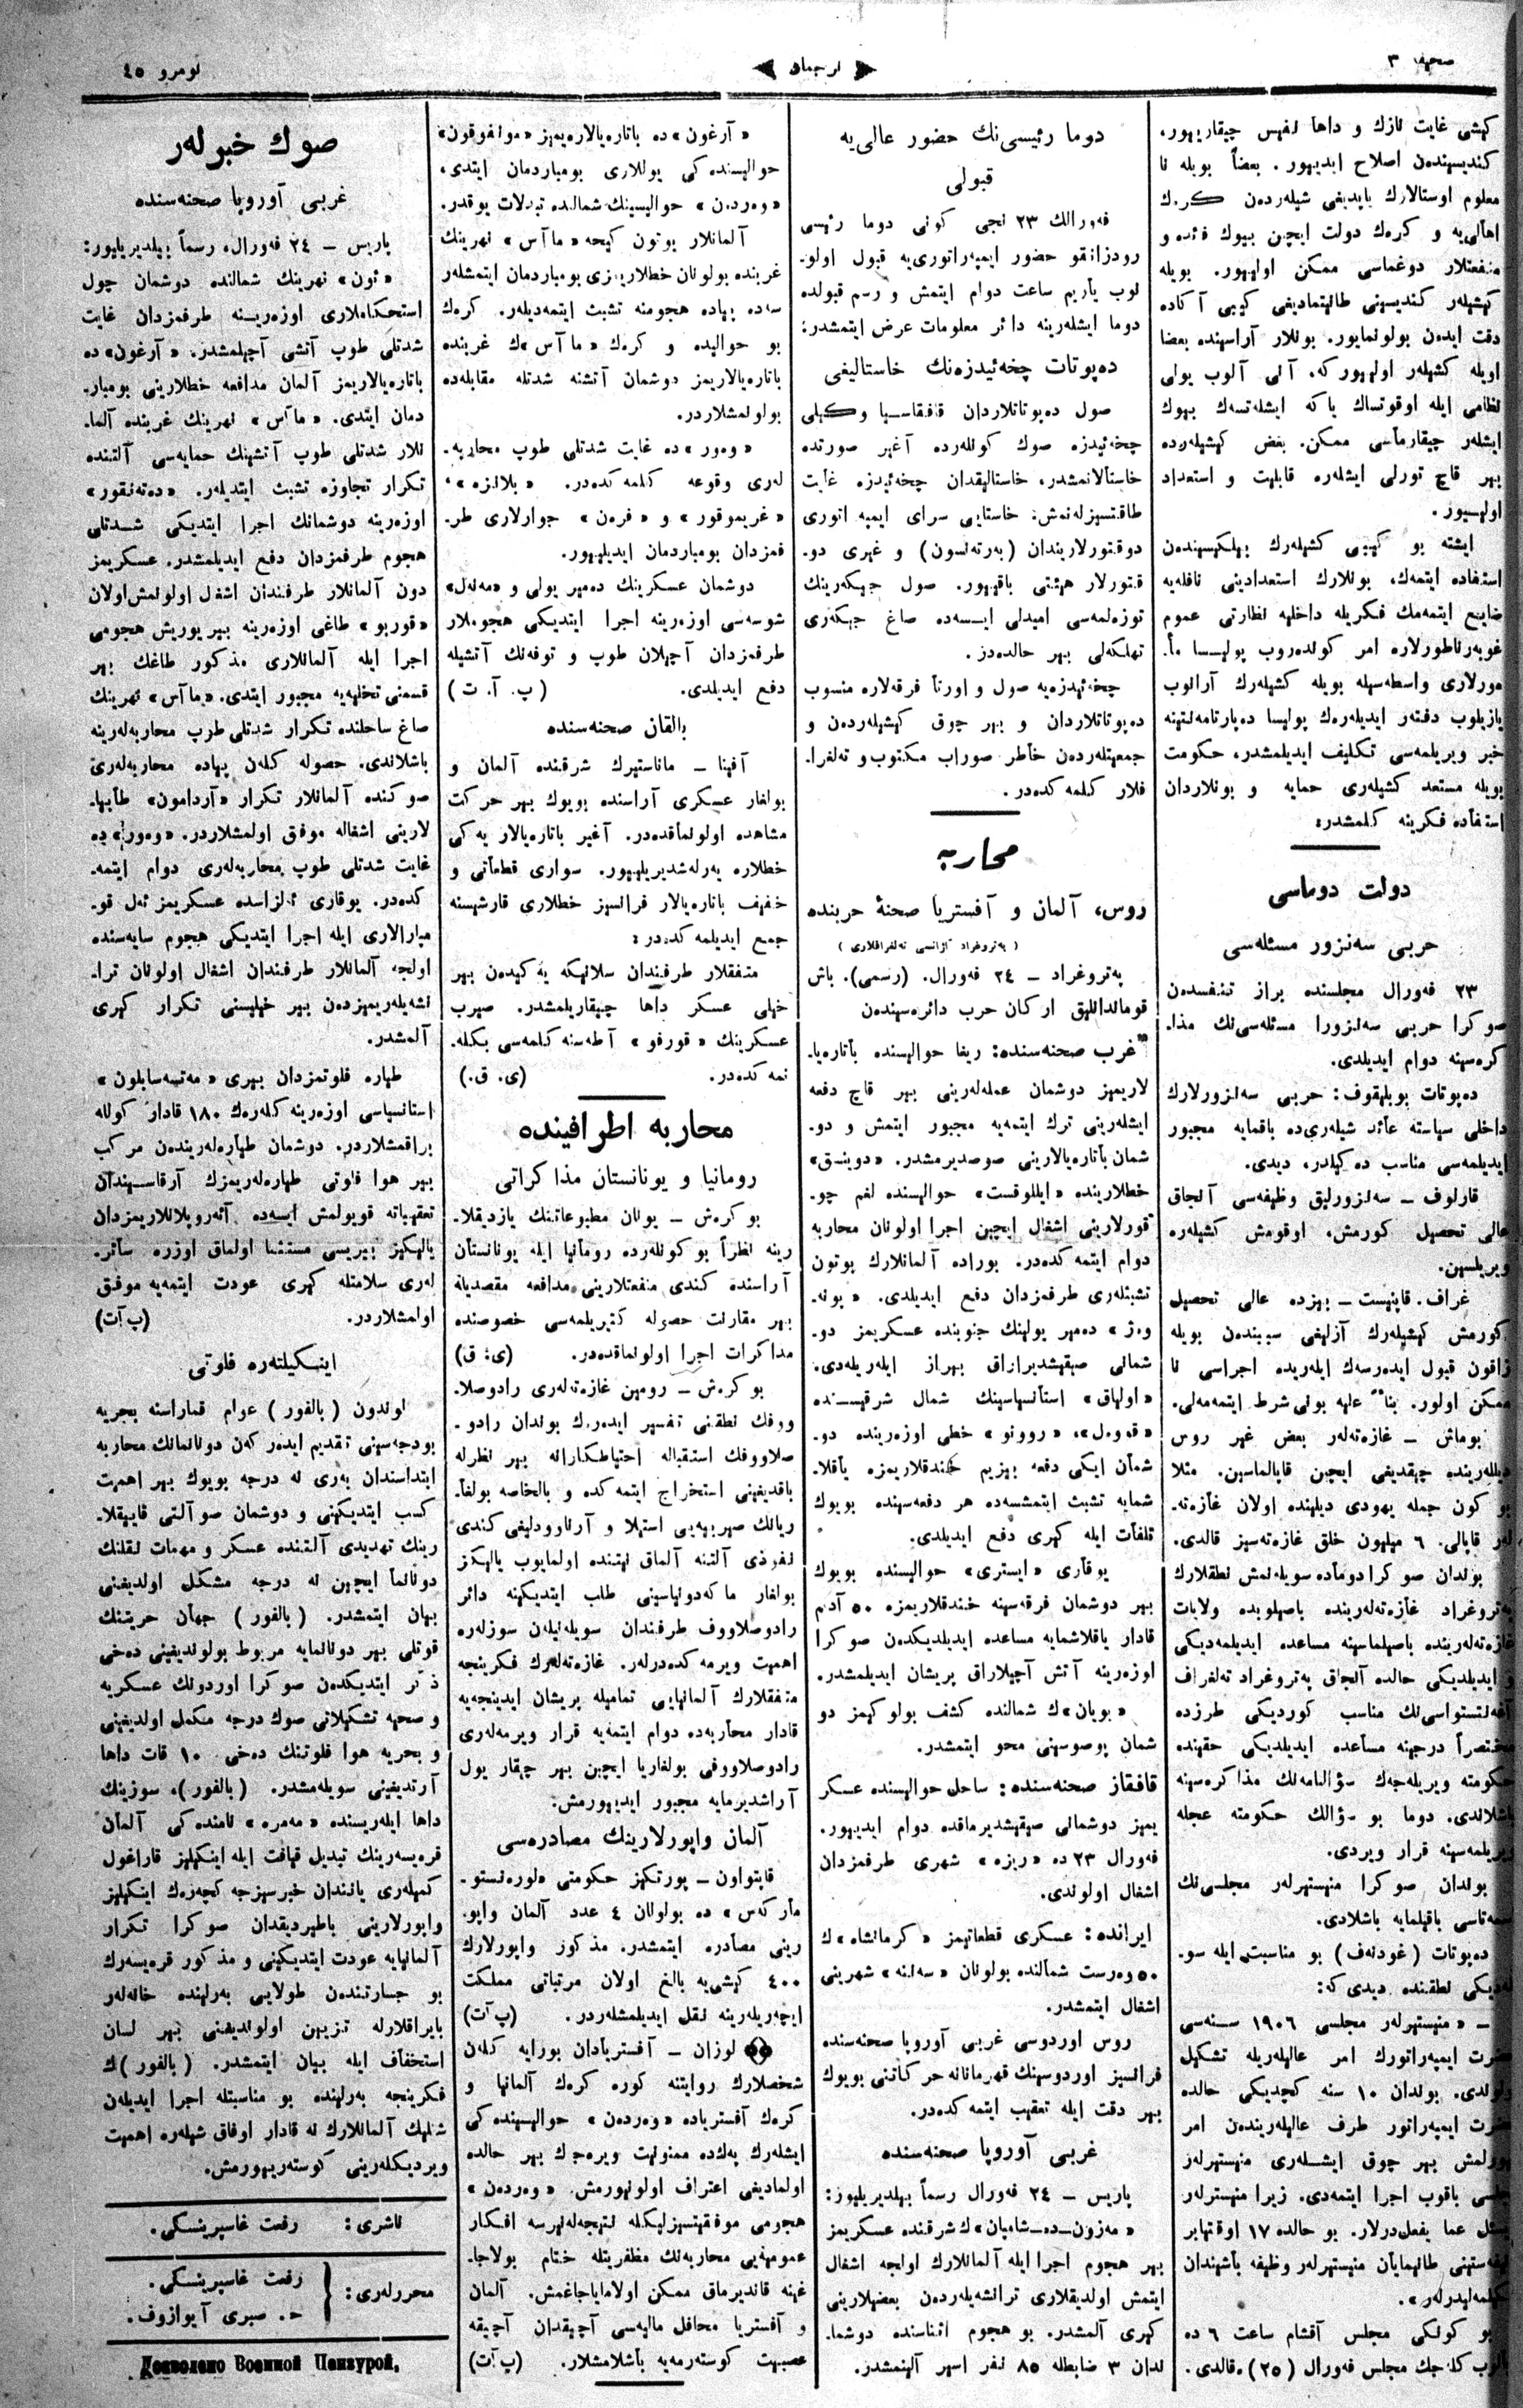 صحیفه ٣
ترجمان
نومرو ٤٥
كیشی غایت نازك و داها نفیس چیقارییور،
كندیسیندەن اصلاح ایدییور. بعضاً بویله نا
معلوم اوستالارك یاپدیغی شیلەردەن كرەك
اهالی‌یه و كرەك دولت ایچین بیوك فائده و
منفعتلار دوغماسی ممكن اولییور. بویله
كیشیلەر كندیسینی طانیتمادیغی كیبی آكاده
دقت ایدەن بولونمایور. بونلار آراسینده بعضا
اویله كشیلەر اولییور كه، آنی آلوب یولی
نظامی ایله اوقوتساك یاكه ایشلەتسەك بیوك
ایشلەر چیقارماسی ممكن. بعض كیشیلەرده
بیر قاچ تورلی ایشلەره قابلیت و استعداد
اولیسیور.
ایشته بو كیبی كشیلەرك بیلكیسیندەن
استفاده ایتمەك، بونلارك استعدادینی نافله‌یه
ضایع ایتمەمك فكریله داخلیه نظارتی عموم
غوبەرناطورلاره امر كوندەروب پولیسا مأ-
مورلاری واسطه‌سیله بویله كشیلەرك آرانوب
یازیلوب دفتەر ایدیلەرەك پولیسا دەپارتامەنتینه
خبر ویریلمه‌سی تكلیف ایدیلمشدر، حكومت
بویله مستعد كشیلەری حمایه و بونلاردان
استفاده فكرینه كلمشدر.
دولت دوماسی
حربی سەنزور مسئله‌سی
٢٣ فەورال مجلسنده براز تنفسدەن
صوكرا حربی سەنزورا مسئله‌سی‌نك مذا-
كره‌سینه دوام ایدیلدی.
دەپوتات بوبلیقوف: حربی سەنزورلارك
داخلی سیاسته عائد شیلەری‌ده باقمایه مجبور
ایدیلمه‌سی مناسب دەكیلدر، دیدی.
قارلوف – سەنزورلیق وظیفه‌سی آنجاق
عالی تحصیل كورمش، اوقومش كشیلەره
ویریلسین.
غراف. قاپنیست – بیزده عالی تحصیل
كورمش كیشیلەرك آزلیغی سببندەن بویله
زاقون قبول ایدەرسەك ایلەریده اجراسی نا
ممكن اولور. بناً علیه بونی شرط ایتمه‌ملی.
بوماش – غازەتەلەر بعض غیر روس
دیللەرینده چیقدیغی ایچین قاپالماسین. مثلا
بو كون جمله یهودی دیلینده اولان غازەته-
لەر قاپالی. ٦ میلیون خلق غازەته‌سیز قالدی.
بوندان صوكرا دوماده سویله‌نمش نطقلارك
پەتروغراد غازەتەلەرینده باصیلوبده ولایات
غازەتەلەرینده باصیلماسینه مساعده ایدیلمه‌دیكی
و ایدیلدیكی حالده آنجاق پەتروغراد تەلغراف
آغەنتستواسی‌نك مناسب كوردیكی طرزده
مختصراً درجینه مساعده ایدیلدیكی حقینده
حكومته ویریله‌جەك سؤالنامه‌نك مذاكره‌سینه
باشلاندی. دوما بو سؤالك حكومته عجله
ویریلمه‌سینه قرار ویردی.
بوندان صوكرا مینیستیرلەر مجلسی‌نك
سمەتاسی باقیلمایه باشلادی.
دەپوتات (غودنەف) بو مناسبت ایله سو-
یله‌دیكی نطقنده دیدی كه:
– «مینیستیرلەر مجلسی ١٩٠٦ سنه‌سی
حضرت ایمپەراتورك امر عالیلەریله تشكیل
اولندی. بوندان ١٠ سنه كچدیكی حالده
حضرت ایمپەراتور طرف عالیلەریندەن امر
بیورلمش بیر چوق ایشلەری مینیستیرلەر
مجلسی باقوب اجرا ایتمەدی. زیرا مینیسترلەر
یسئل عما یفعل‌درلار. بو حالده ١٧ اوقتیابر
نیفه‌ستینی طانیمایان مینیستیرلەر وظیفه باشیندان
چكیلمه‌لیدرلەر».
بو كونكی مجلس آقشام ساعت ٦ ده
یاپیلوب كله‌جك مجلس فەورال (٢٥)ـه قالدی.
دوما رئیسی‌نك حضور عالی‌یه
قبولی
فەورالك ٢٣ نجی كونی دوما رئیسی
رودزانقو حضور ایمپەراتوری‌یه قبول اولو-
نوب یاریم ساعت دوام ایتمش و رسم قبولده
دوما ایشلەرینه دائر معلومات عرض ایتمشدر.
دەپوتات چخەئیدزەنك خاستالیغی
صول دەپوتاتلاردان قافقاسیا وكیلی
چخەئیدزه صوك كونلەرده آغیر صورتده
خاستالانمشدر، خاستالیقدان چخەئیدزه غایت
طاقتسیزله‌نمش: خاستایی سرای ایمپەراتوری
دوقتورلاریندان (بەرتەنسون) و غیری دو-
قتورلار هیئتی باقییور. صول جیكەرینك
توزه‌لمه‌سی امیدلی ایسه‌ده صاغ جیكەری
تهلكه‌لی بیر حالده‌در.
چخەئیدزه‌یه صول و اورتا فرقه‌لاره منسوب
دەپوتاتلاردان و بیر چوق كیشیلەردەن و
جمعیتلەردەن خاطر صوراب مكتوب و تەلغرا-
فلار كلمه‌كده‌در.
محاربه
روس، آلمان و آفستریا صحنهٔ حربنده
(پەتروغراد آژانسی تەلغرافلاری)
پەتروغراد – ٢٤ فەورال. (رسمی). باش
قومانداانلیق اركان حرب دائره‌سیندەن
غرب صحنه‌سنده: ریغا حوالیسنده باتارەیا-
لاریمیز دوشمان عمله‌لەرینی بیر قاچ دفعه
ایشلەرینی ترك ایتمه‌یه مجبور ایتمش و دو-
شمان باتارەیالارینی صوصدیرمشدر. «دوینسق»
خطلارینده «ایللوقست» حوالیسنده لغم چو-
قورلارینی اشغال ایچین اجرا اولونان محاربه
دوام ایتمه‌كده‌در. بوراده آلمانلارك بوتون
تشبثلەری طرفمزدان دفع ایدیلدی. «پونه-
وەژ» دەمیر یولینك جنوبنده عسكریمز دو-
شمانی صیقیشدیراراق بیراز ایلەریله‌دی.
«اولیاق» استانسیاسینك شمال شرقیسنده
«قوەل»، «روونو» خطی اوزەرینده دو-
شمان ایكی دفعه بیزیم خندقلاریمزه یاقلا-
شمایه تشبث ایتمشسه‌ده هر دفعه‌سینده بویوك
تلفات ایله كیری دفع ایدیلدی.
یوقاری «ایستری» حوالیسنده بویوك
بیر دوشمان فرقه‌سینه خندقلاریمزه ٥٠ آدیم
قادار یاقلاشمایه مساعده ایدیلدیكدەن صوكرا
اوزەرینه آتش آچیلاراق پریشان ایدیلمشدر.
«بویان»ك شمالنده كشف بولوكیمز دو
شمان پوصوسینی محو ایتمشدر.
قافقاز صحنه‌سنده: ساحل حوالیسنده عسكر
یمیز دوشمانی صیقیشدیرماقده دوام ایدییور.
فەورال ٢٣ ده «ریزه» شهری طرفمزدان
اشغال اولوندی.
ایرانده: عسكری قطعاتیمز «كرمانشاه»ك
٥٠ وەرست شمالنده بولونان «سەننه» شهرینی
اشغال ایتمشدر.
روس اوردوسی غربی آوروپا صحنه‌سنده
فرانسیز اوردوسینك قهرمانانه حركاتنی بویوك
بیر دقت ایله تعقیب ایتمه‌كده‌در.
غربی آوروپا صحنه‌سنده
پاریس – ٢٤ فەورال رسماً بیلدیریلیور:
«مەزون-ده-شامپان»ك شرقنده عسكریمز
بیر هجوم اجرا ایله آلمانلارك اولجه اشغال
ایتمش اولدیقلاری ترانشەیلەردەن بعضیلارینی
كیری آلمشدر. بو هجوم اثناسنده دوشما-
ندان ٣ ضابطله ٨٥ نفر اسیر آلینمشدر.
«آرغون»ده باتارەیالارەیمیز «مونفوقون»
حوالیسنده‌كی یوللاری بومباردمان ایتدی،
«وەردەن» حوالیسینك شمالنده تبدلات یوقدر.
آلمانلار بوتون كیجه «ماآس» نهرینك
غربنده بولونان خطلاریمزی بومباردمان ایتمشلەر
سه‌ده پیاده هجومنه تشبث ایتمه‌دیلەر. كرەك
بو حوالیده و كرەك «ماآس»ك غربنده
باتارەیالاریمز دوشمان آتشنه شدتله مقابله‌ده
بولونمشلاردر.
«وەور»ده غایت شدتلی طوپ محاربه-
لەری وقوعه كلمه‌كده‌در. «بلانزه»،
«غریموقور» و «فرەن» جوارلاری طر-
فمزدان بومباردمان ایدیلییور.
دوشمان عسكرینك دەمیر یولی و «مەنەل»
شوسه‌سی اوزەرینه اجرا ایتدیكی هجوملار
طرفمزدان آچیلان طوپ و توفەنك آتشیله
دفع ایدیلدی. (پ. آ. ت)
بالقان صحنه‌سنده
آفینا – ماناستیرك شرقنده آلمان و
بولغار عسكری آراسنده بویوك بیر حركت
مشاهده اولونماقده‌در. آغیر باتارەیالار یه‌كی
خطلاره یەرله‌شدیریلییور. سواری قطعاتی و
خفیف باتارەیالار فرانسیز خطلاری قارشیسنه
جمع ایدیلمه‌كده‌در.
متفقلار طرفندان سلانیكه یه‌كیدەن بیر
خیلی عسكر داها چیقاریلمشدر. صیرب
عسكرینك «قورفو» آطه‌سنه كلمه‌سی بكله-
نمه‌كده‌در. (ی. ق.)
محاربه اطرافینده
رومانیا و یونانستان مذاكراتی
بوكرەش – یونان مطبوعاتنك یازدیقلا-
رینه نظراً بو كونلەرده رومانیا ایله یونانستان
آراسنده كندی منفعتلارینی مدافعه مقصدیله
بیر مقارنت حصوله كتیریلمه‌سی خصوصنده
مذاكرات اجرا اولونماقده‌در. (ی. ق)
بوكرەش – رومین غازەتەلەری رادوسلا-
ووفك نطقنی تفسیر ایدەرك بوندان رادو-
صلاووفك استقباله احتیاطكارانه بیر نظرله
باقدیغینی استخراج ایتمه‌كده و بالخاصه بولغا-
ریانك صیربیه‌یی استیلا و آرناوودلیغی كندی
نفوذی آلتنه آلماق نیتنده اولمایوب یالیكز
بولغار ماكەدونیاسینی طلب ایتدیكینه دائر
رادوصلاووف طرفندان سویله‌نیلەن سوزلەره
اهمیت ویرمه‌كده‌درلەر. غازەتەلەرك فكرینجه
متفقلارك آلمانیایی تمامیله پریشان ایدینجه‌یه
قادار محاربه‌ده دوام ایتمه‌یه قرار ویرمه‌لەری
رادوصلاووفی بولغاریا ایچین بیر چیقار یول
آراشدیرمایه مجبور ایدییورمش.
آلمان واپورلارینك مصادره‌سی
قاپتواون – پورتكیز حكومتی «لورەنستو-
ماركەس»ده بولونان ٤ عدد آلمان واپو-
رینی مصادره ایتمشدر. مذكور واپورلارك
٤٠٠ كیشی‌یه بالغ اولان مرتباتی مملكت
ایچەریلەرینه نقل ایدیلمشلەردر. (پ آت)
لوزان – آفستریادان بورایه كلەن
شخصلارك روایتنه كوره كرەك آلمانیا و
كرەك آفستریاده «وەردەن» حوالیسینده‌كی
ایشلەرك یەك‌ده ممنونیت ویره‌جك بیر حالده
اولمادیغی اعتراف اولونیورمش. «وەردەن»
هجومی موفقیتسیزلیكله نتیجه‌له‌نیرسه افكار
عمومیه‌یی محاربه‌نك مظفریتله ختام بولاجا-
غینه قاندیرماق ممكن اولامایاجاغمش. آلمان
و آفستریا محافل مالیه‌سی آچیقدان آچیقه
عصبیت كوسته‌رمه‌یه باشلامشلار. (پ آت)
صوك خبرلەر
غربی آوروپا صحنه‌سنده
پاریس – ٢٤ فەورال. رسماً بیلدیریلیور:
«ئون» نهرینك شمالنده دوشمان چول
استحكاملاری اوزەرینه طرفمزدان غایت
شدتلی طوپ آتشی آچیلمشدر. «آرغون»ده
باتارەیالاریمز آلمان مدافعه خطلارینی بومبار-
دمان ایتدی. «ماآس» نهرینك غربنده آلما-
نلار شدتلی طوپ آتشینك حمایه‌سی آلتنده
تكرار تجاوزه تشبث ایتدیلەر. «دەتەنقور»
اوزەرینه دوشمانك اجرا ایتدیكی شدتلی
هجوم طرفمزدان دفع ایدیلمشدر. عسكریمز
دون آلمانلار طرفندان اشغال اولونمش‌اولان
«قوربو» طاغی اوزەرینه بیر یوریش هجومی
اجرا ایله آلمانلاری مذكور طاغك بیر
قسمنی تخلیه‌یه مجبور ایتدی. «ماآس» نهرینك
صاغ ساحلنده تكرار شدتلی طوپ محاربه‌لەرینه
باشلاندی. حصوله كلەن پیاده محاربه‌لەری
صوكنده آلمانلار تكرار «آردامون» طابیا-
لارینی اشغاله موفق اولمشلاردر. «وەور»ده
غایت شدتلی طوپ محاربه‌لەری دوام ایتمه-
كده‌در. یوقاری ئلزاسده عسكریمز ئەل قو-
مبارالاری ایله اجرا ایتدیكی هجوم سایه‌سنده
اولجه آلمانلار طرفندان اشغال اولونان ترا-
نشەیلەریمیزدەن بیر خیلیسنی تكرار كیری
آلمشدر.
طیاره فلوتمزدان بیری «مەتسەسابلون»
استانسیاسی اوزەرینه كلەرەك ١٨٠ قادار كولله
براقمشلاردر. دوشمان طیارەلەریندەن مركب
بیر هوا فلوتی طیارەلەریمزك آرقاسیندان
تعقیباته قویولمش ایسه‌ده آئەروپلانلاریمزدان
یالیكیز بیریسی مستثنا اولماق اوزره سائر-
لەری سلامتله كیری عودت ایتمه‌یه موفق
اولمشلاردر. (پ آت)
اینكیلتەره فلوتی
لوندون (بالفور) عوام قماراسنه بحریه
بودجه‌سینی تقدیم ایدەر كەن دونانمانك محاربه
ابتداسندان بەری نه درجه بویوك بیر اهمیت
كسب ایتدیكینی و دوشمان صو آلتی قاییقلا-
رینك تهدیدی آلتنده عسكر و مهمات نقلنك
دونانما ایچین نه درجه مشكل اولدیغینی
بیان ایتمشدر. (بالفور) جهان حریتنك
قوتلی بیر دونانمایه مربوط بولوندیغینی دەخی
ذكر ایتدیكدەن صوكرا اوردونك عسكریه
و صحیه تشكیلاتی صوك درجه مكمل اولدیغینی
و بحریه هوا فلوتنك دەخی ١٠ قات داها
آرتدیغینی سویله‌مشدر. (بالفور)، سوزینك
داها ایلەریسنده «مەمره» نامنده‌كی آلمان
قرەیسەرینك تبدیل قیافت ایله اینكیلیز قاراغول
كمیلەری یانندان خبرسیزجه كچەرەك اینكیلیز
واپورلارینی باطیردیقدان صوكرا تكرار
آلمانیایه عودت ایتدیكینی و مذكور قرەیسەرك
بو جسارتندەن طولایی بەرلینده خانه‌لەر
بایراقلارله تزیین اولوندیغینی بیر لسان
استخفاف ایله بیان ایتمشدر. (بالفور)ك
فكرینجه بەرلینده بو مناسبتله اجرا ایدیلەن
شنلیك آلمانلارك نه قادار اوفاق شیلەره اهمیت
ویردیكلەرینی كوسته‌رییورمش.
ناشری: رفعت غاسپرینسكی.
محررلەری: رفعت غاسپرینسكی.
ح. صبری آیوازوف.
Дозволено Военной Цензурой.